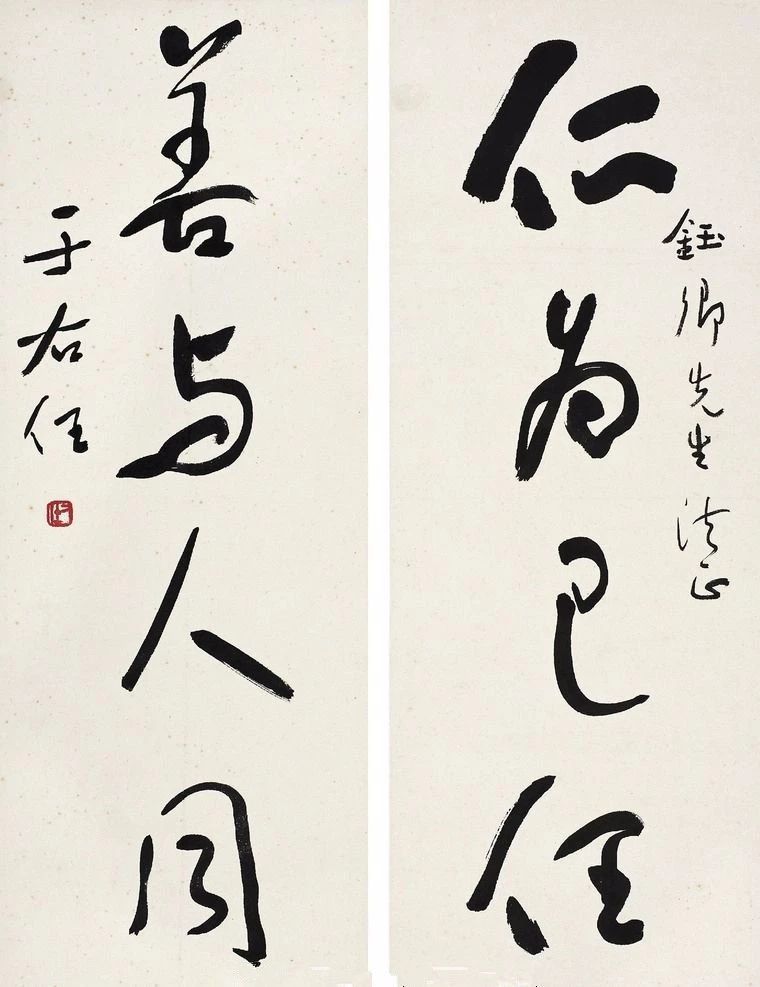 鈺卿先生法正
仁为己任
善与人同
于右任